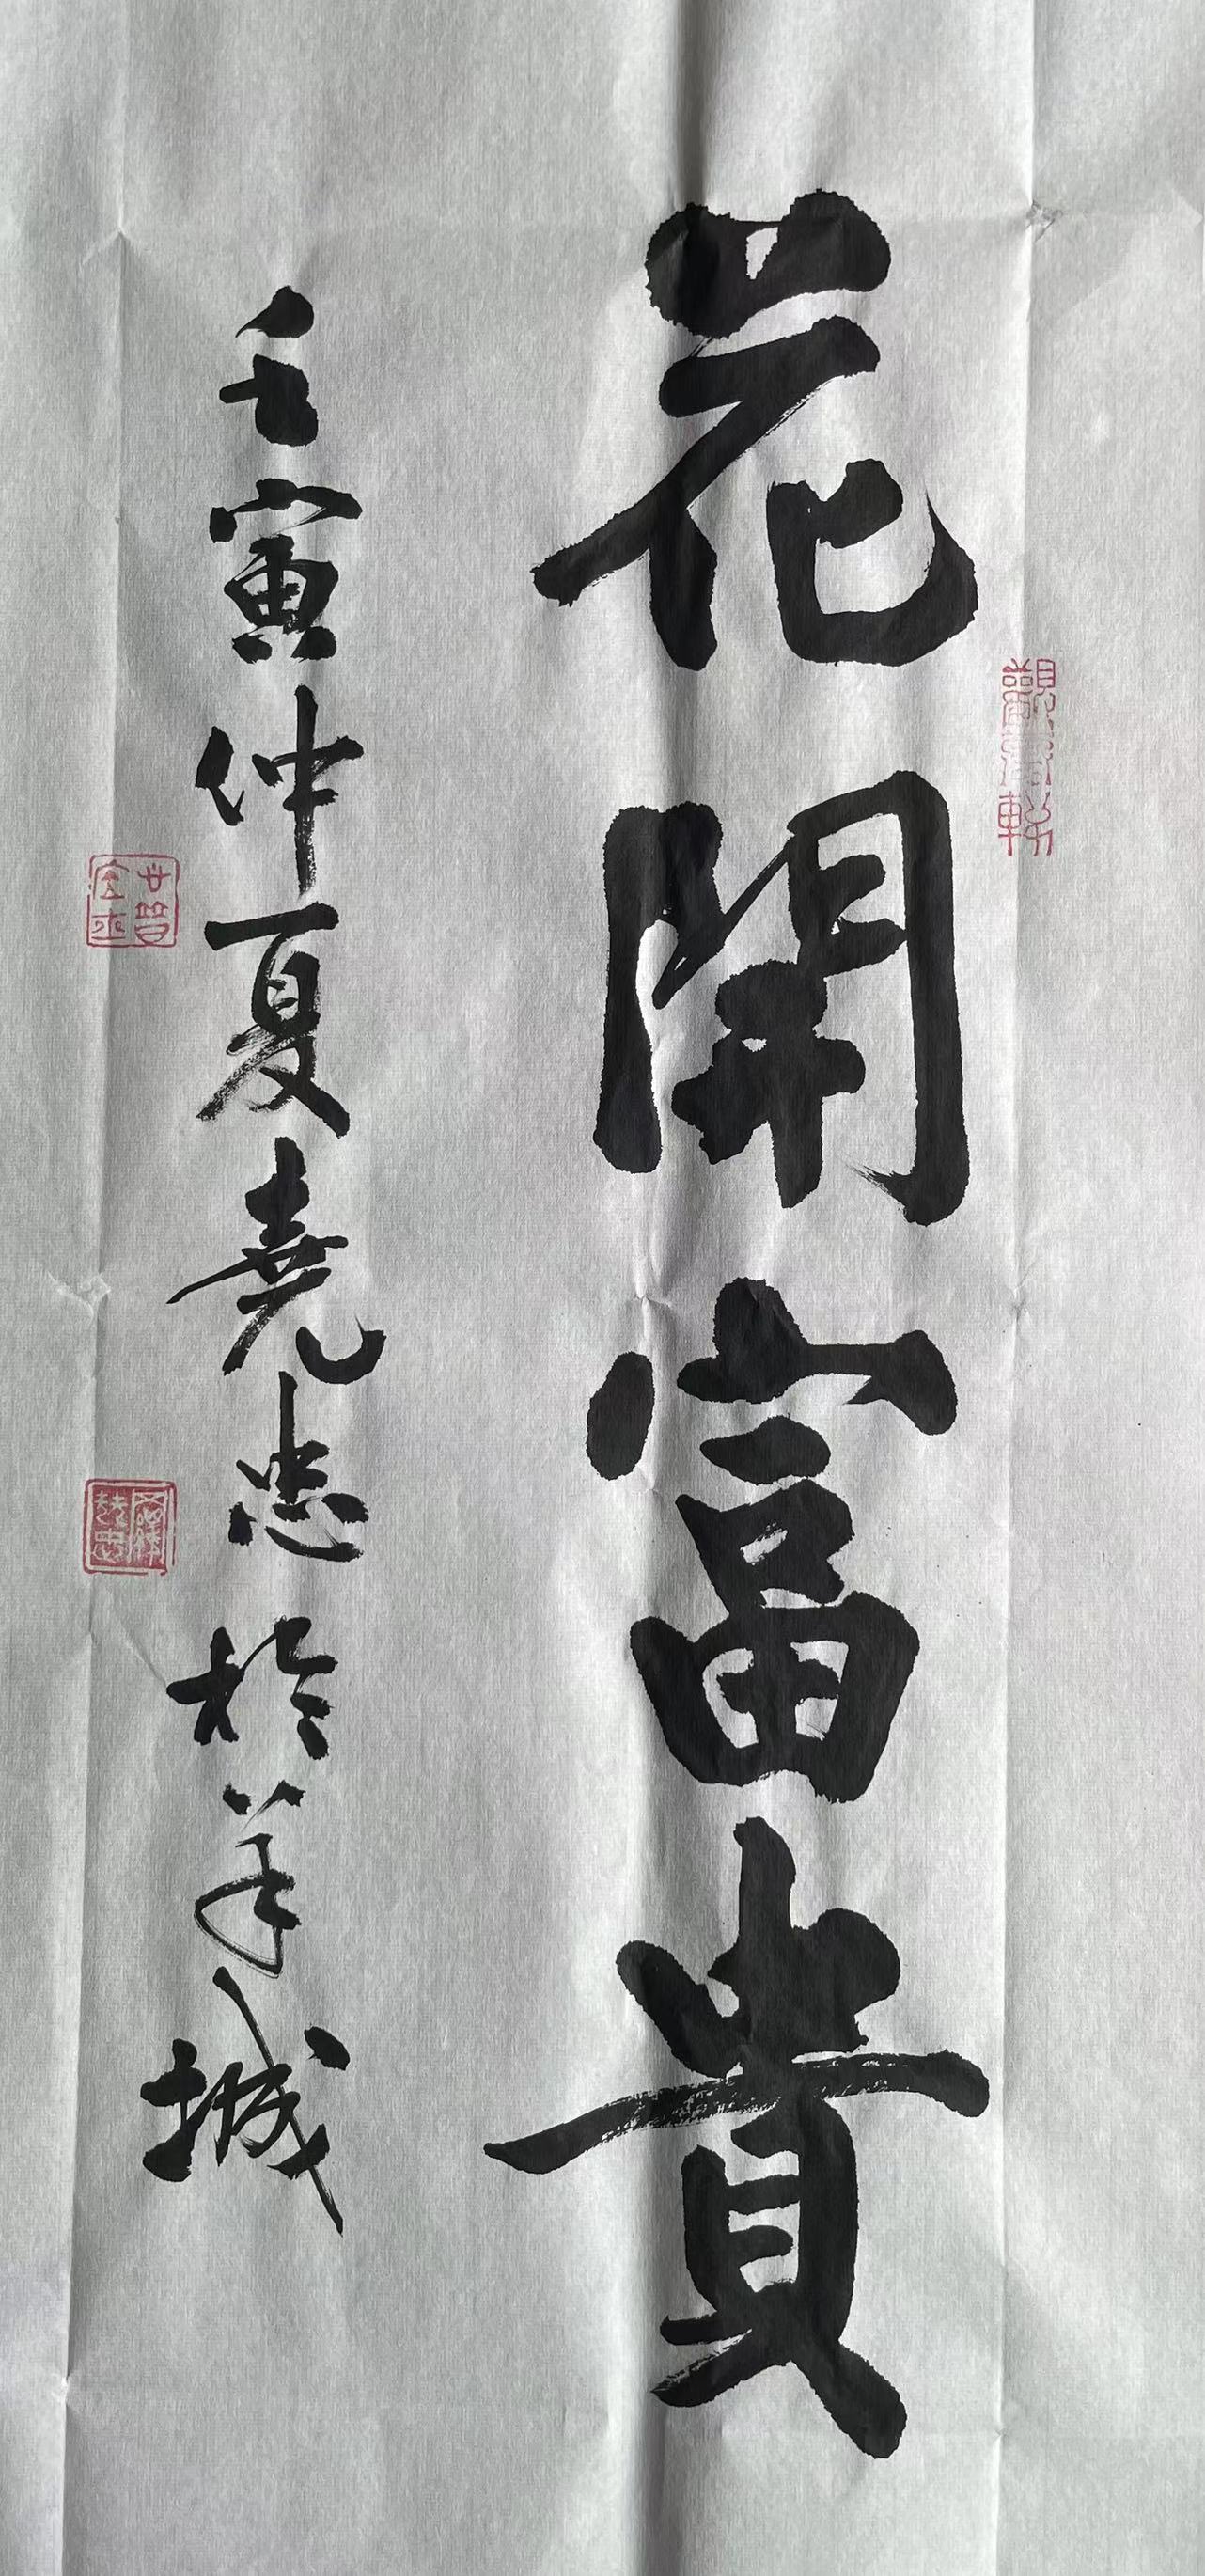 花開富貴
壬寅仲夏堯忠於羊城